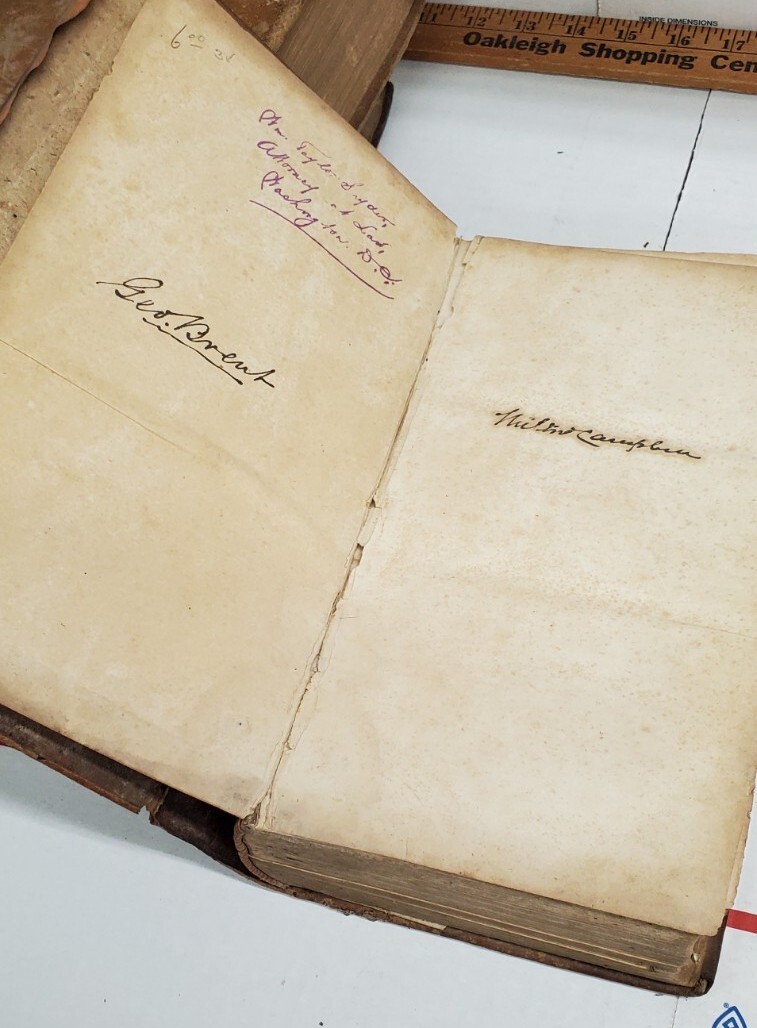 6 00
Attorney at Law,
Washington. D.C.
Geo. Brent
Campbell
11 12 13 14 15 16 17
INSIDE DIMENSIONS
Oakleigh Shopping Cen